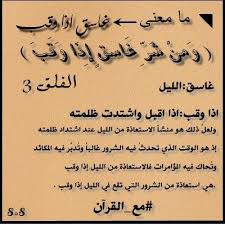 ما معنى ← غاسق اذا وقب
( وَمِنْ شَرِّ غَاسِقٍ إِذَا وَقَبَ )
الفلق 3
غاسق:الليل
اذا وقب:اذا اقبل واشتدت ظلمته
ولعل ذلك هو منشأ الاستعاذة من الليل عند اشتداد ظلمته
إذ هو الوقت الذي تحدث فيه الشرور غالباً وتُدبر فيه المكائد
وتُحاك فيه المؤامرات فالاستعاذة من الليل إذا وقب
.هي استعاذة من الشرور التي تقع في الليل إذا وقب
#مع_القرآن
8.8